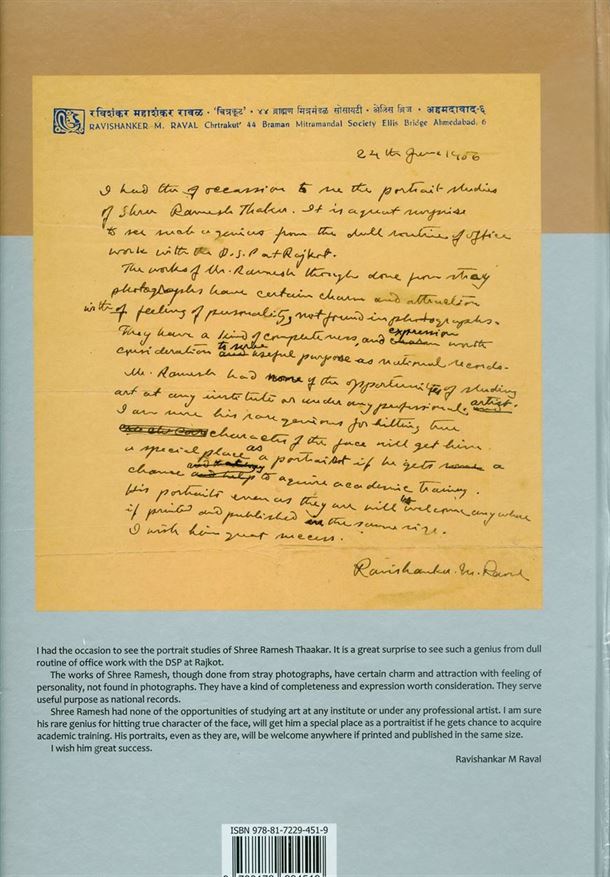 રવિશંકર મહાશંકર રાવળ · 'ચિત્રકૂટ' · ૪૪ બ્રાહ્મણ મિત્રમંડળ સોસાયટી · એલિસ બ્રિજ · અહમદાવાદ-૬
RAVISHANKER M. RAVAL Chrtrakut' 44 Braman Mitramandal Society Ellis Bridge Ahmedabad. 6
24th June 1966
I had the of occassion to see the portrait studies
of Shree Ramesh Thakar. It is a great surprise
to see such a genius from the dull routine of office
work with the D.S.P at Rajkot.
The works of Mr. Ramesh though done from stray
photographs have certain charm and attraction
with of feeling of personality, not found in photographs.
They have a kind of completeness, and expression worth
consideration to serve useful purpose as national records.
Mr. Ramesh had none of the opportunities of studing
art at any institute or under any professional artist.
I am sure his rare genious for hitting true
character of the face will get him
a special place as a portraitist if he gets a
chance to aquire academic training.
His portraits even as they are will be welcome anywhere
if printed and published in the same size.
I wish him great success.
Ravishanker. M. Raval
I had the occasion to see the portrait studies of Shree Ramesh Thaakar. It is a great surprise to see such a genius from dull
routine of office work with the DSP at Rajkot.
The works of Shree Ramesh, though done from stray photographs, have certain charm and attraction with feeling of
personality, not found in photographs. They have a kind of completeness and expression worth consideration. They serve
useful purpose as national records.
Shree Ramesh had none of the opportunities of studying art at any institute or under any professional artist. I am sure
his rare genius for hitting true character of the face, will get him a special place as a portraitist if he gets chance to acquire
academic training. His portraits, even as they are, will be welcome anywhere if printed and published in the same size.
I wish him great success.
Ravishankar M Raval
ISBN 978-81-7229-451-9